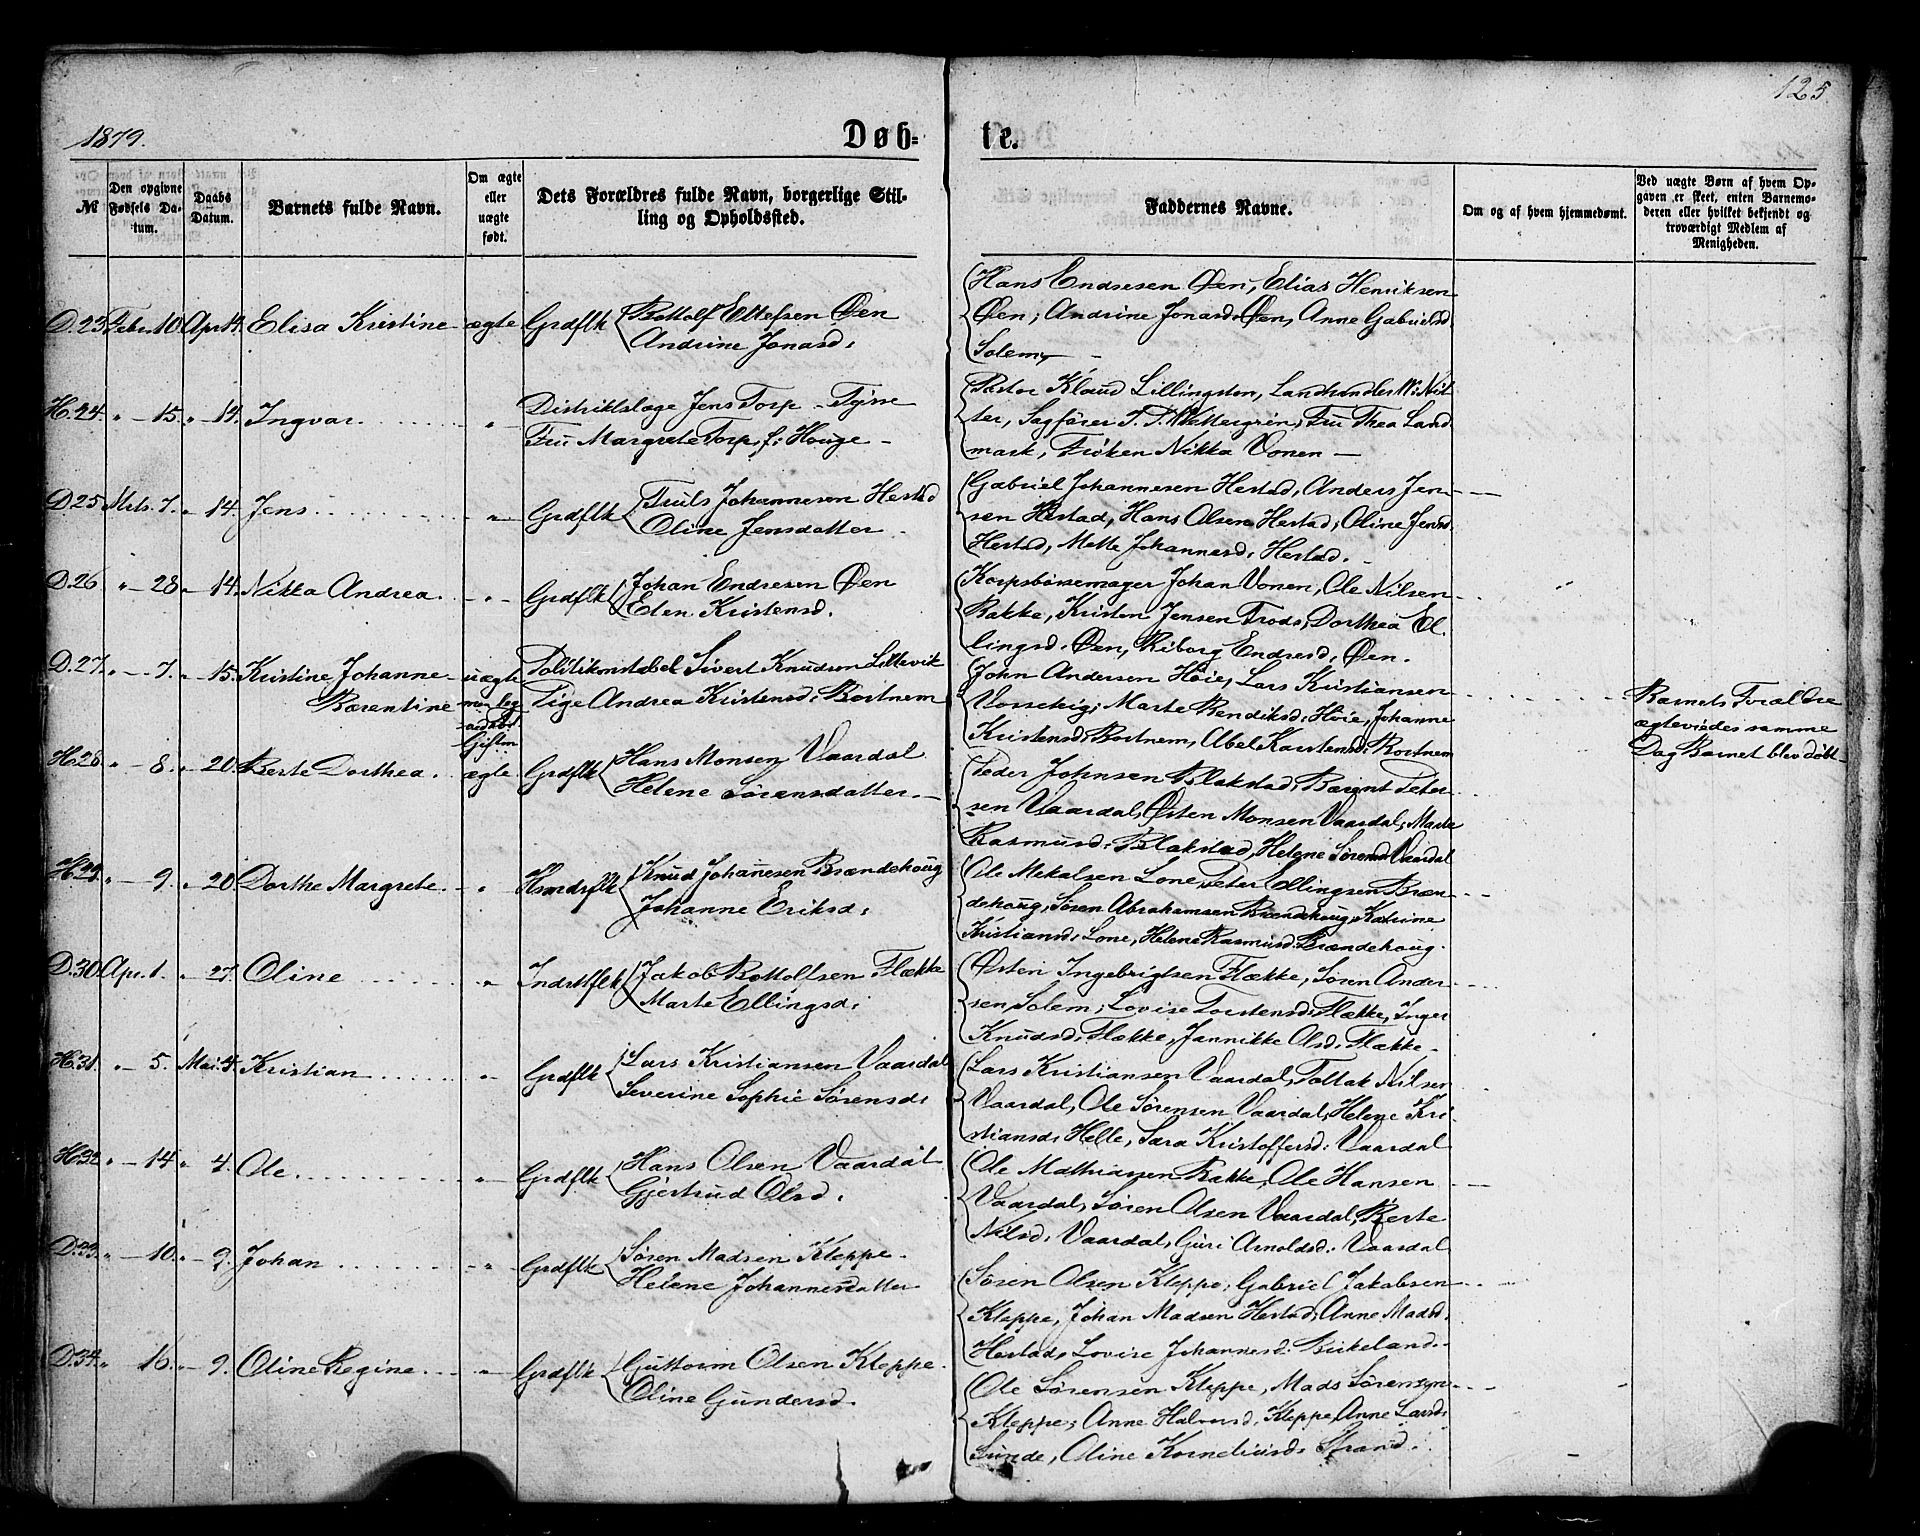 125.
1879.
Døb-
te.
№
Den opgivne Fødsels Datum.
Daabs Datum.
Barnets fulde Navn.
Om ægte eller uægte født.
Dets Forældres fulde Navn, borgerlige Stilling og Opholdssted.
Faddernes Navne.
Om og af hvem hjemmedøbt.
Ved uægte Børn af hvem Opgaven er skeet, enten Barnemoderen eller hvilket bekjendt og troværdigt Medlem af Menigheden.
D.23. Febr. 10. Apr 14. Elisa Kristine ægte Grdflk
Bottolf Ellefsen Øen
Andrine Jonasd:
Hans Endresen Øen, Elias Henriksen
Øen; Andrine Jonasd. Øen, Anne Gabrielsd
Solem,
H.24. " 15. " 14. Ingvar "
Distriktslæge Jens Torp - Tysse
Fru Margrete Torp, f: Houge
Pastor Klaud Lillingston, Landhandler
Sagfører T. T. Wettergrén, Fru Thea Land
mark, Frøken Nikka Vonen
D.25 Mrts. 7. " 14. Jens " Grdflk
Truls Johannesen Hestad
Oline Jensdatter
Gabriel Johannesen Hestad, Anders Jen-
sen Hestad, Hans Olsen Hestad, Oline Jensd
Hestad, Mette Johannesd. Hestad.
D.26 " 28 " 14. Nikka Andrea " Grdflk
Johan Endresen Øen
Elen Kristensd.
Korpsbøssemager Johan Vonen, Ole Nilsen
Bakke, Kristen Jensen Trods, Dorthea El
lingsd. Øen, Riborg Endresd. Øen.
D.27. " 7. " 15. Kristine Johanne
Bærentine
uægte
Giftm
Politikonstabel Sivert Knudsen Lillevik
Pige Andrea Kristensd: Bortnem
John Andersen Høie, Lars Kristiansen
Vossevig; Marte Bendiksd: Høie, Johanne
Kristensd: Bortnem, Abel Karstensd: Bortnem
Barnets Forældre
ægteviedes samme
Dag Barnet blev døbt
H.28. " 8. " 20. Berte Dorthea. ægte Grdflk
Hans Monsen Vaardal
Helene Sørensdatter.
Peder Johnsen Blakstad, Barent Peter
sen Vaardal, Østen Monsen Vaardal; Marte
Rasmusd: Blakstad, Helene Sørensd Vaardal
H.29. " 9. " 20. Dorthe Margrete " Hsmdsflk
Knud Johanesen Brændehoug
Johanne Eriksd:
Ole Mekalsen Lone, Peter Ellingsen Bræn-
dehoug, Søren Abrahamsen Brændehoug, Katrine
Kristiansd: Lone, Helene Rasmusd. Brændehoug.
D.30. Apr. 1. " 27. Oline " Indstflk
Jakob Bottolfsen Flække
Marte Ellingsd:
Østen Ingebrigtsen Flække, Søren Ander-
sen Solem; Lovise Torstensd: Flække, Inger
Knudsd. Flække, Jannikke Olsd. Flække.
H.31. " 5. Mai. 4. Kristian " Grdflk
Lars Kristiansen Vaardal
Severine Sophie Sørensd:
Lars Kristiansen Vaardal, Tollak Nilsen
Vaardal, Ole Sørensen Vaardal, Helene Kri
stiansd: Helle, Sara Kristoffersd: Vaardal
H.32 " 14 " 4. Ole " Grdflk
Hans Olsen Vaardal
Gjertrud Olsd:
Ole Mathiassen Bakke, Ole Hansen
Vaardal, Søren Olsen Vaardal, Berte
Nilsd. Vaardal, Guri Arnoldsd: Vaardal
D.33. " 10. " 9. Johan " Grdflk
Søren Madsen Kleppe.
Helene Johannesdatter
Søren Olsen Kleppe, Gabriel Jakobsen
Kleppe, Johan Madsen Hestad, Anne Madsd.
Hestad, Lovise Johannesd. Birkeland.
D.34. " 16. " 9. Oline Regine. " Grdflk
Guttorm Olsen Kleppe.
Oline Gundersd.
Ole Sørensen Kleppe, Mads Sørensen
Kleppe; Anne Halvorsd. Kleppe, Anne Larsd.
Sunde, Oline Korneliusd. Strand.